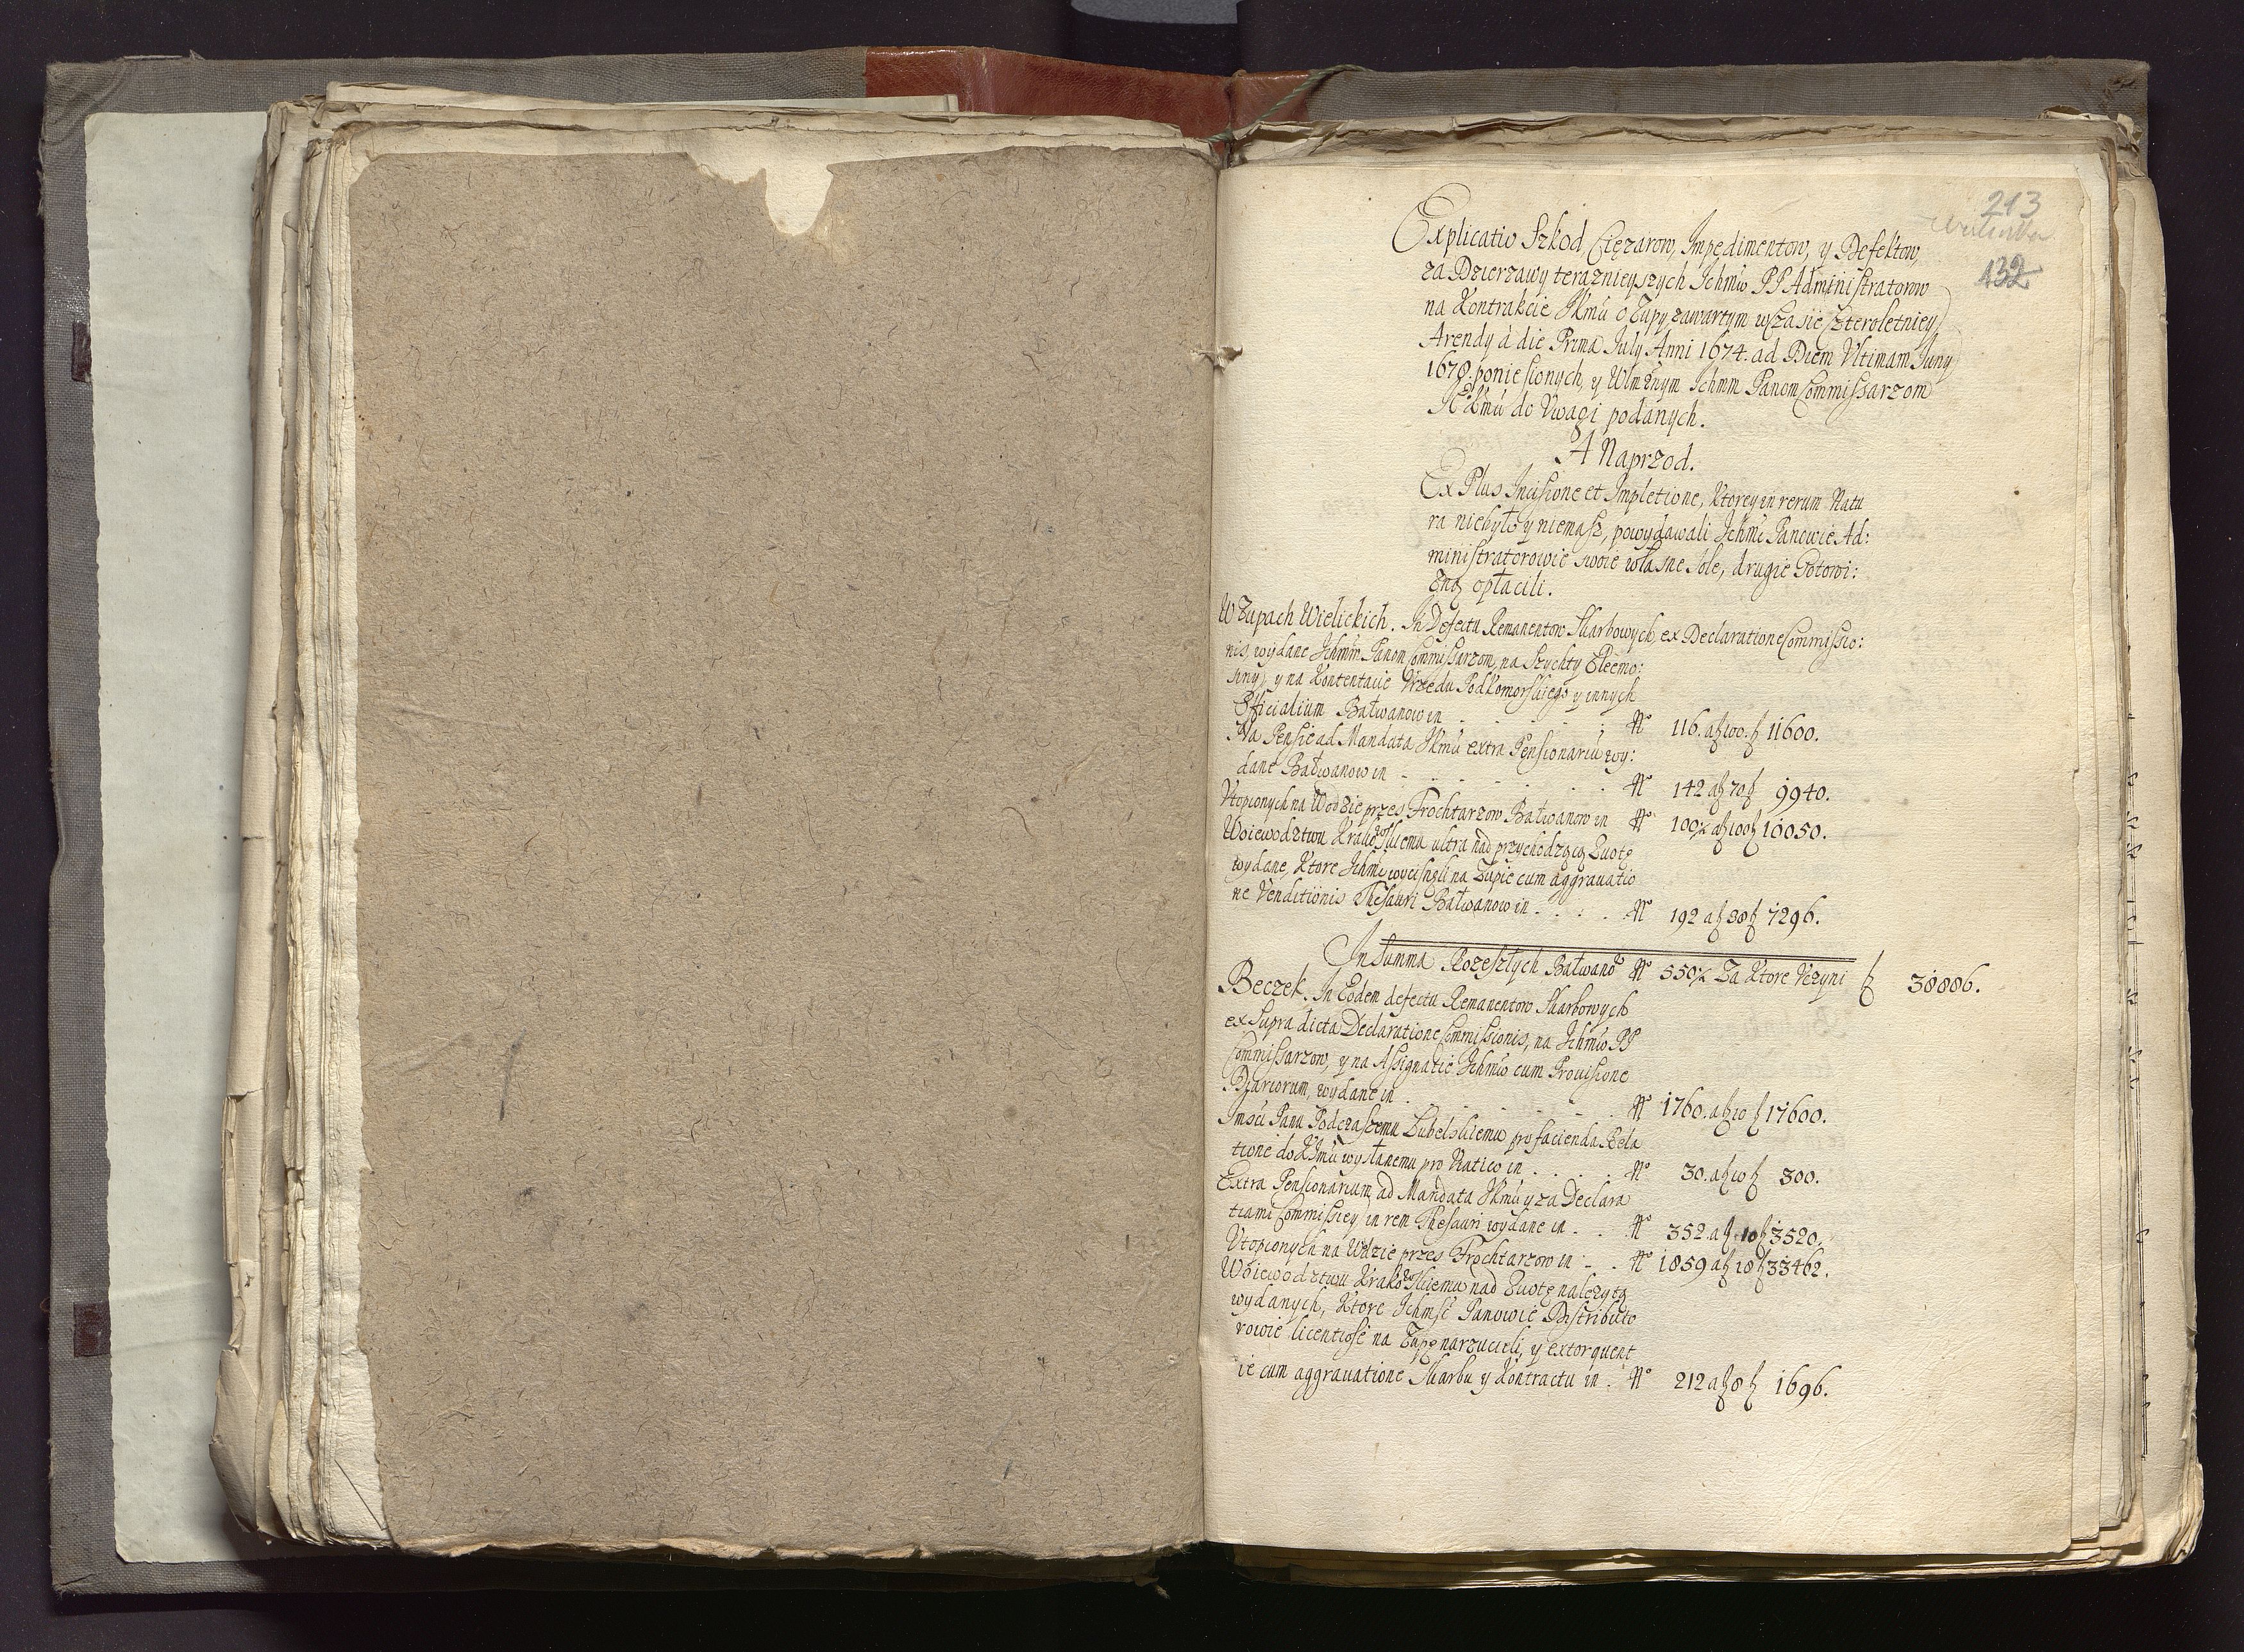 213
132
Explicatio Szkod Cięzarow, Impedimentow, y Defektow,
za Dzierzawy teraznieyszych Ichmw PP Administratorow
na Kontrakcie JKmci o Zupy zawartym w Czasie Czteroletniey
Arendy à die Prima July Anni 1674. ad Diem Vltimam Juny
1678. poniesionych, y Wlmznym Ichmm Panom Commissarzom
JKMci do Vwagi podanych.
A Naprzod.
Ex Plus Incisione et Impletione, Ktorey in rerum Natu
ra niebyło y niemasz, powydawali Ichmc Panowie Ad:
ministratorowie swoie własne sole, drugie Gotowi:
zną opłacili.
W Zupach Wielickich. In Defectu Remanentow Skarbowych, ex Declaratione Commissio:
nis, wydane Ichmw Panom Commissarzom, na Szychty Eleemo:
siny, y na Kontentacie Vrzedu Podkomorskiego y innych
Officialium Bałwanow in . . . . Nº 116. af 100. f 11600.
Na Pensie ad Mandata JKmci extra Pensionariu wy:
dane Bałwanow in - . . . . Nº 142 af 70 f 9940.
Vtopionych na Wodzie przes Frochtarzow Bałwanow in Nº 100½ af 100 f 10050.
Woiewodztwu Krakowskiemu ultra nad przychodzącą Quotę
wydane, Ktore Ichmc wycisneli na Zupie cum aggrauatio
ne Venditionis Thesauri Bałwanow in . . : . Nº 192 af 38 f 7296.
In Summa Rozeszłych Bałwanow Nº 550½ Za Ktore Vczyni f 38886.
Beczek. In Eodem defectu Remanentow Skarbowych
ex Supra dicta Declaratione Commissionis, na Ichmw PP
Commissarzow, y na Assignatie Ichmw cum Prouisione
Diariorum, wydane in . . . . Nº 1760. af 10 f 17600.
Imsci Panu Podczaszemu Lubelskiemu pro facienda Rela
tione do JKmci wysłanemu pro Viatico in . . . . Nº 30. af 10 f 300.
Extra Pensionarium, ad Mandata JKmci y za Declara
tiami Commissiey in rem Thesauri wydane in . . Nº 352. af 10 f 3520.
Vtopionych na Wodzie przes Frochtarzow in . . Nº 1859 af 18 f 33462.
Woiewodztwu Krakowskiemu nad Quotę nalezytą
wydanych, Ktore Ichmsc Panowie Distributo
rowie licentiose na Zupę narzucieli, y extorquent
ie cum aggrauatione Skarbu y Kontractu in . Nº 212 af 8 f 1696.